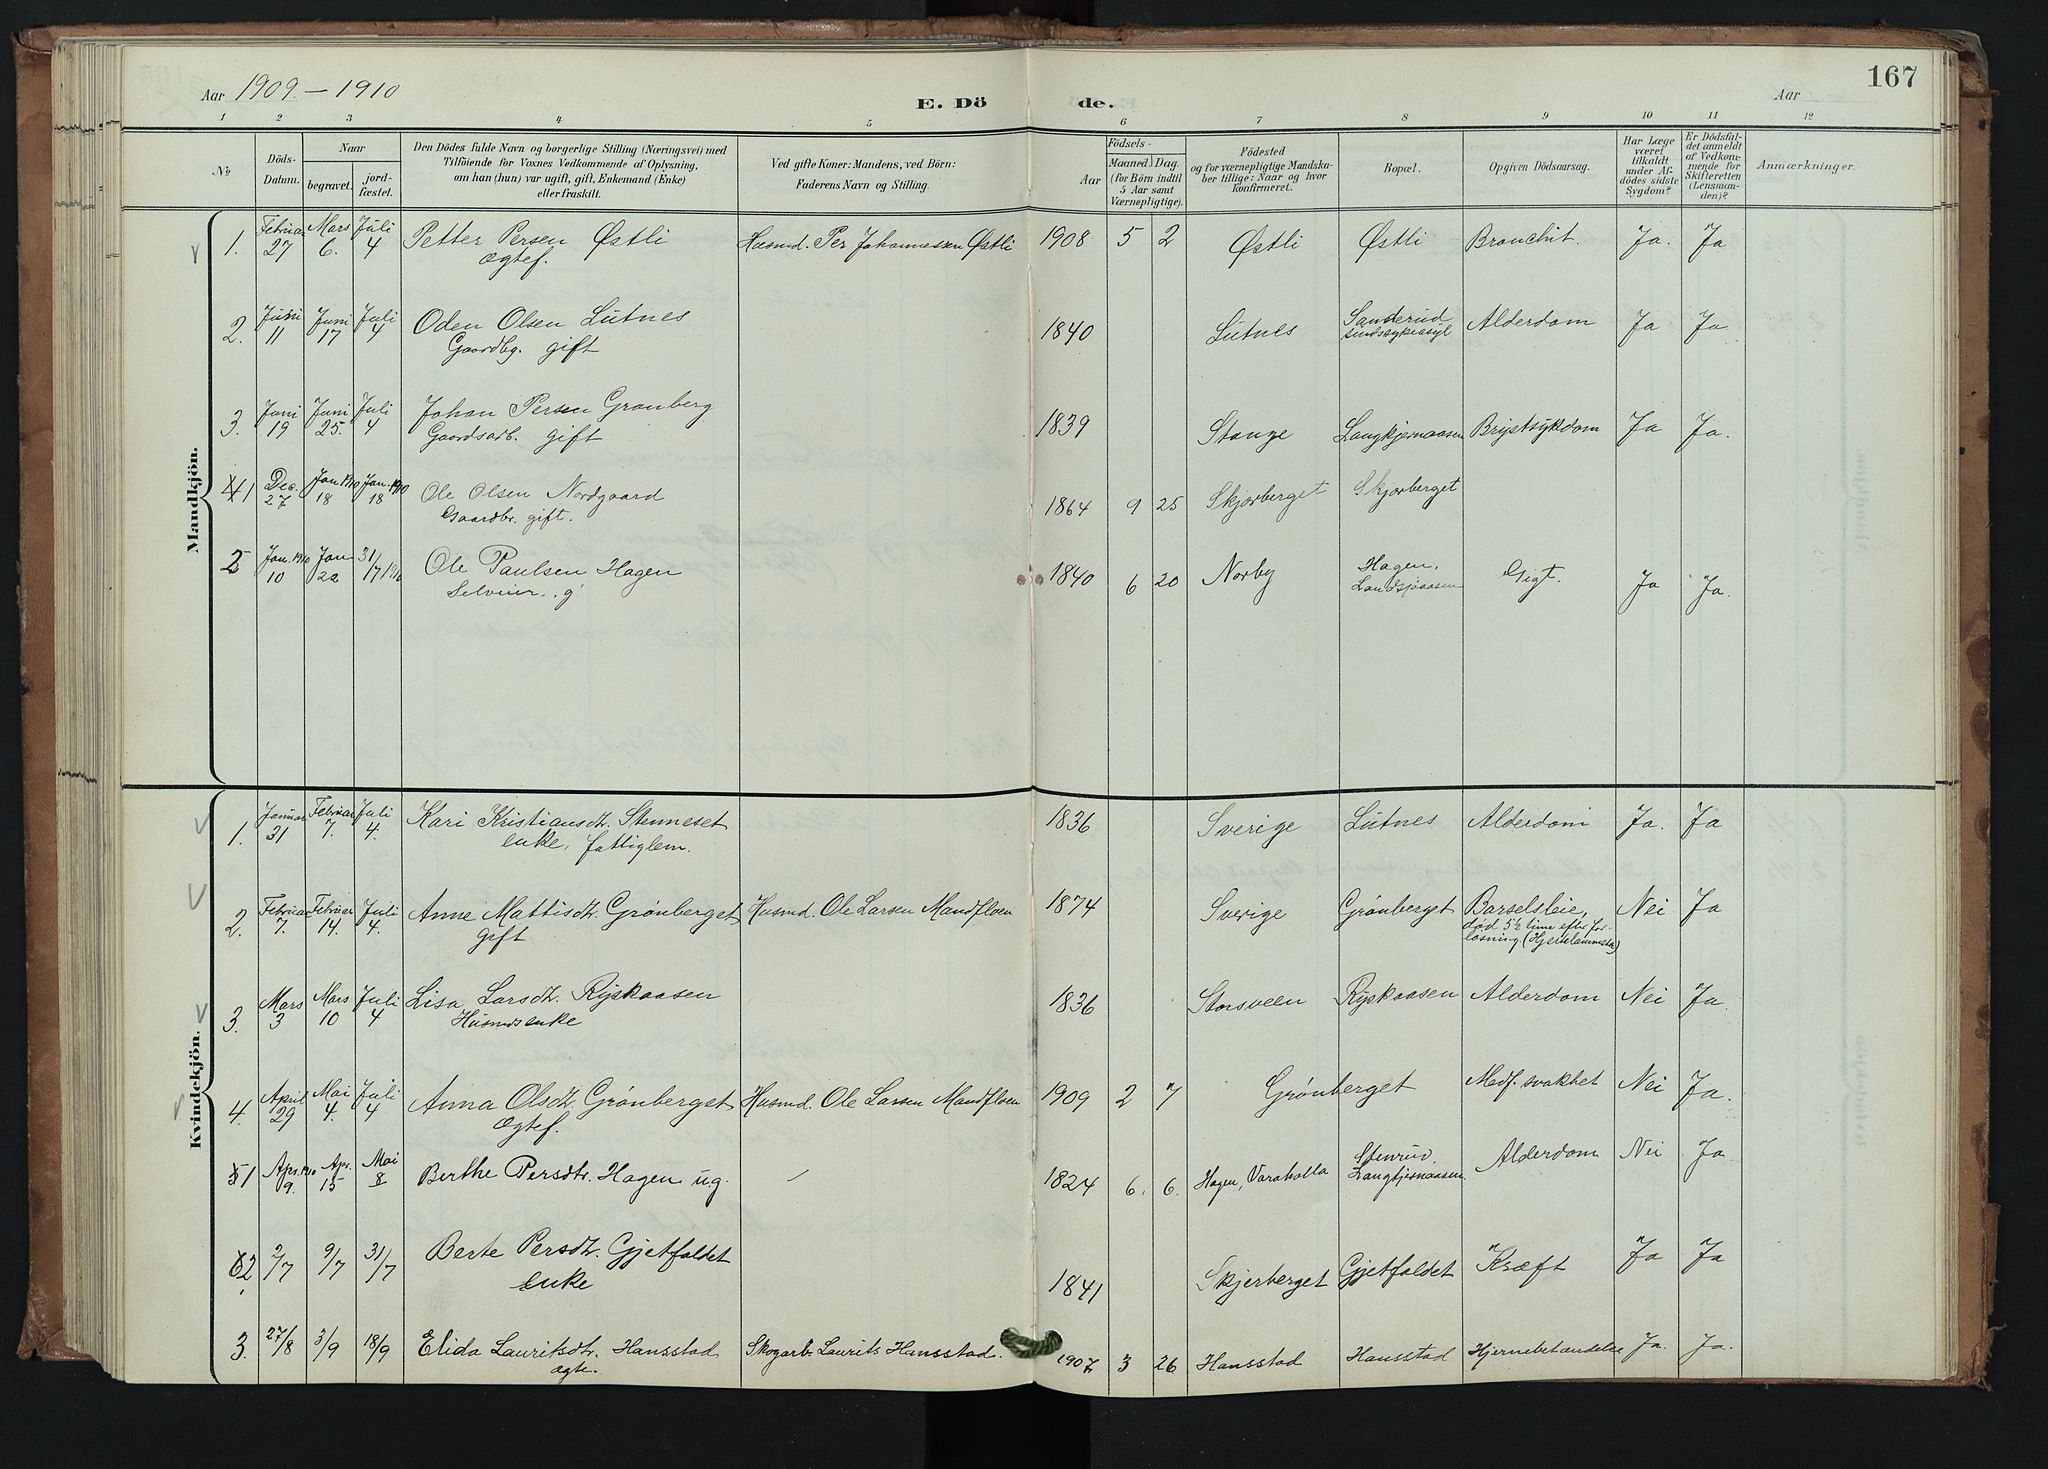 Aar 1909. - 1910
E. Dö de.
Aar
167
1 2 3 4 5 6 7 8 9 10 11 12
No
Döds-Datum.
Naar
begravet.
jord-fæstet.
Den Dödes fulde Navn og borgerlige Stilling (Næringsvei) med
Tilföiende for Voxnes Vedkommende af Oplysning,
om han (hun) var ugift, gift, Enkemand (Enke)
eller fraskilt.
Ved gifte Koner: Mandens, ved Börn:
Faderens Navn og Stilling.
Födsels-
Aar
Maaned. Dag.
(for Börn indtil
5 Aar samt
Værnepligtige).
Födested
og for værnepligtige Mandska-
ber tillige: Naar og hvor
konfirmeret.
Bopæl.
Opgiven Dödsaarsag.
Har Læge
været
tilkaldt
under Af-
dödes sidste
Sygdom?
Er Dödsfal-
det anmeldt
af Vedkom-
mende for
Skifteretten
(Lensman-
den)?
Anmærkninger.
Mandkjön.
1. Februar 27 Mars 6. Juli 4 Petter Persen Østli Husmd. Per Johannessen Østli 1908 5 2 Østli Østli Bronchit. Ja. Ja
ægtef.
2. Juni 11 Juni 17 Juli 4 Oden Olsen Lutnes 1840 Lutnes Sanderud sindssykeasyl Alderdom Ja Ja.
Gaardbg. gift
3. Juni 19 Juni 25. Juli 4 Johan Persen Grønberg 1839 Stange Langkjernaasen Brystsykdom Ja Ja.
Gaardsarb. gift
41 Dec. 27 Jan. 1910 18 Jan. 1910 18 Ole Olsen Nordgaard 1864 9 25 Skjærberget Skjærberget
Gaardbr. gift.
2 Jan. 1910 10 Jan 22 31/7 1910 Ole Paulsen Hagen 1840 6 20 Norby Hagen, Landsjøaasen Gigt. Ja Ja.
Selveier. g
Kvindekjön.
1. Januar 31 Februar 7. Juli 4. Kari Kristiansdtr. Stenneset 1836 Sverige Lutnes Alderdom Ja. Ja
enke, fattiglem.
2. Februar 7. Februar 14. Juli 4. Anne Mattisdtr. Grønberget Husmd. Ole Larsen Mandfloen 1874 Sverige Grønberget Barselsleie, død 5½ time efter for-løsning (Hjertelammelse) Nei Ja
gift
3. Mars 3 Mars 10 Juli 4 Lisa Larsdtr. Ryskaasen 1836 Storsveen Ryskaasen Alderdom Nei Ja.
Husmdsenke
4. April 29 Mai 4. Juli 4 Anna Olsdtr. Grønberget Husmd. Ole Larsen Mandfloen 1909 2 7 Grønberget Medf. svakhet Nei Ja.
ægtef.
51 Apr. 1910 9. Apr. 15 Mai 8 Berthe Persdtr. Hagen ug. 1824 6. 6. Hagen, Varaholla Stenrud, Langkjernaasen Alderdom Nei Ja
62 2/7 9/7 31/7 Berte Persdtr. Gjetfaldet 1841 Skjerberget Gjetfaldet Kræft Ja Ja
enke
3. 27/8 3/9 18/9 Elida Lauritsdtr. Hansstad Skogarb. Laurits Hansstad. 1907 3 26 Hansstad Hansstad Hjernebetændelse Ja. Ja.
ægte.